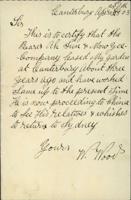 Canterbury April
Sir
This is to certify that the
Bearer Ah Sun & Mow Gee
Company leased My Garden
at Canterbury About three
years ago and have worked
same up to the present time
He is now proceeding to China
to See His relatives & wishes
to return to Sydney
Yours
W. Wood